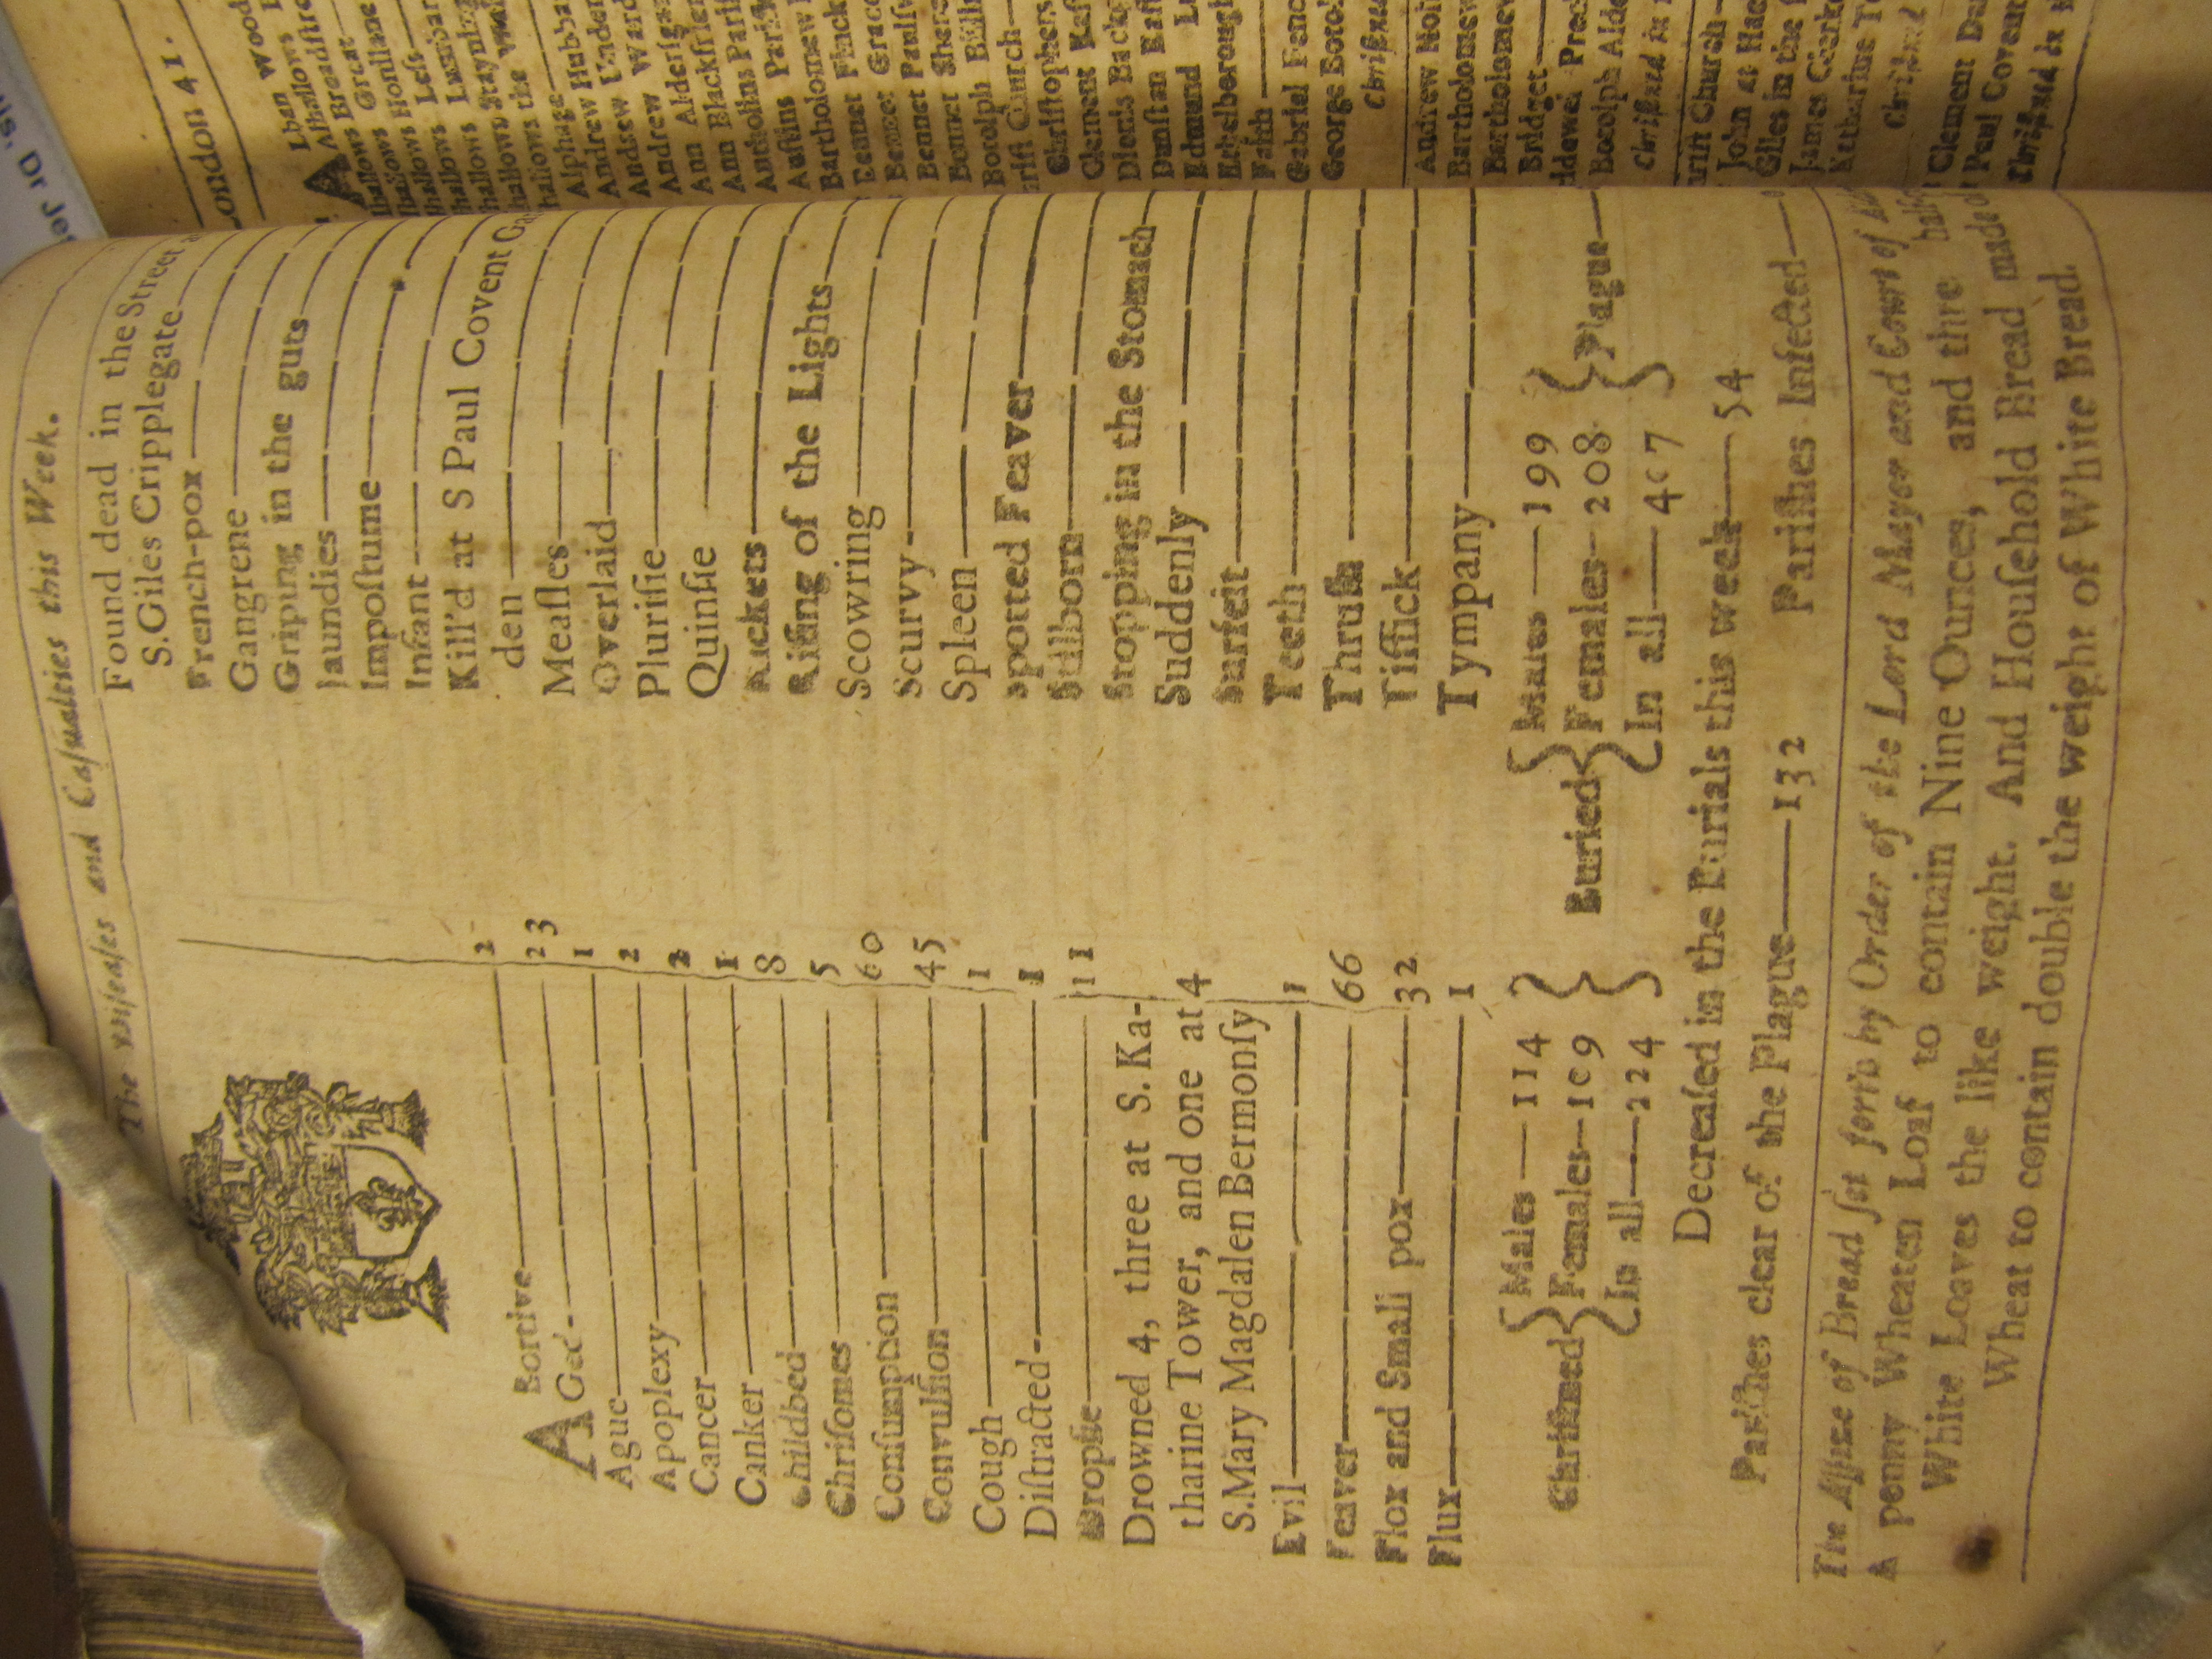 The Diseases and Casualties this Week.
ABortive 2
Aged 23
Ague 1
Apoplexy 2
Cancer 2
Canker 1
Childbed 8
Chriſomes 5
Conſumption 60
Convulſion 45
Cough 1
Diſtracted 1
Dropſie 11
Drowned 4, three at S. Ka-
tharine Tower, and one at 4
S. Mary Magdalen Bermonſy
Evil 1
Feaver 66
Flox and Small pox 32
Flux 1
Found dead in the Street
S. Giles Cripplegate
French-pox
Gangrene
Griping in the guts
Jaundies
Impoſtume
Infant
Kill'd at S Paul Covent Ga
den
Meaſles
Overlaid
Pluriſie
Quinſie
Rickets
Riſing of the Lights
Scowring
Scurvy
Spleen
Spotted Feaver
Stilborn
Stopping in the Stomach
Suddenly
Surfeit
Teeth
Thruſh
Tiſſick
Tympany
Chriſtned
Males 114
Females 109
In all 224
Buried
Males 199
Females 208
In all 407
Plague
Decreaſed in the Burials this week 54
Pariſhes clear of the Plague 132 Pariſhes Infected
The Aſſize of Bread ſet forth by Order of the Lord Mayor and Court of
A penny Wheaten Loaf to contain Nine Ounces, and three half
White Loaves the like weight. And Houſehold Bread made of
Wheat to contain double the weight of White Bread.
London 41.
Lban Wood
Alhallows
Alhallows Breadſtre
hallows Great
hallows Honilane
hallows Leſs
hallows Lumbar
hallows Staynin
hallows the Wall
Alphage
Andrew Hubba
Andrew Under
Andrew Ward
Ann Alderſga
Ann Blackfrier
Antholins Pariſ
Auſtins Pariſ
Bartholomew
Bennet Finck
Bennet Grace
Bennet Paulſw
Bennet Shere
Botolph Billin
Chriſt Church
Chriſtophers
Clement Eaſ
Dionis Back
Dunſtan Eaſ
Edmund L
Ethelborough
Faith
Gabriel Fenc
George Botol
Chriſtned
Andrew Hol
Bartholomew
Bartholomew
Bridget
Bridewel Prec
Botolph Alde
Chriſtned in
Chriſt Church
John at Hac
Giles in the
James Clerke
Katharine To
Chriſtned
Clement Da
Paul Covent
Chriſtned in